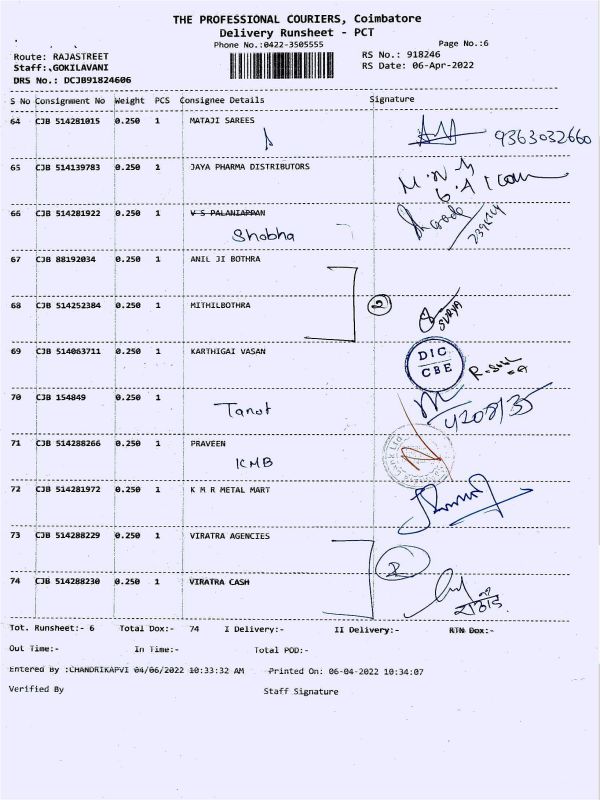 THE PROFESSIONAL COURIERS, Coimbatore
Delivery Runsheet - PCT
Phone No.:0422-3505555
Page No.:6
Route: RAJASTREET
RS No.: 918246
Staff:.GOKILAVANI
RS Date: 06-Apr-2022
DRS No.: DCJB91824606
S No Consignment No Weight PCS Consignee Details Signature
64 CJB 514281015 0.250 1 MATAJI SAREES
9363032660
65 CJB 514139783 0.250 1 JAYA PHARMA DISTRIBUTORS
66 CJB 514281922 0.250 1 V S PALANIAPPAN
Shobha
67 CJB 88192034 0.250 1 ANIL JI BOTHRA
68 CJB 514252384 0.250 1 MITHILBOTHRA
2
SURYA
69 CJB 514063711 0.250 1 KARTHIGAI VASAN
DIC
CBE
70 CJB 154849 0.250 1
Tanot
71 CJB 514288266 0.250 1 PRAVEEN
KMB
72 CJB 514281972 0.250 1 K M R METAL MART
73 CJB 514288229 0.250 1 VIRATRA AGENCIES
2
74 CJB 514288230 0.250 1 VIRATRA CASH
Tot. Runsheet:- 6 Total Dox:- 74 I Delivery:- II Delivery:- RTN Dox:-
Out Time:- In Time:- Total POD:-
Entered By :CHANDRIKAPVI 04/06/2022 10:33:32 AM Printed On: 06-04-2022 10:34:07
Verified By Staff Signature